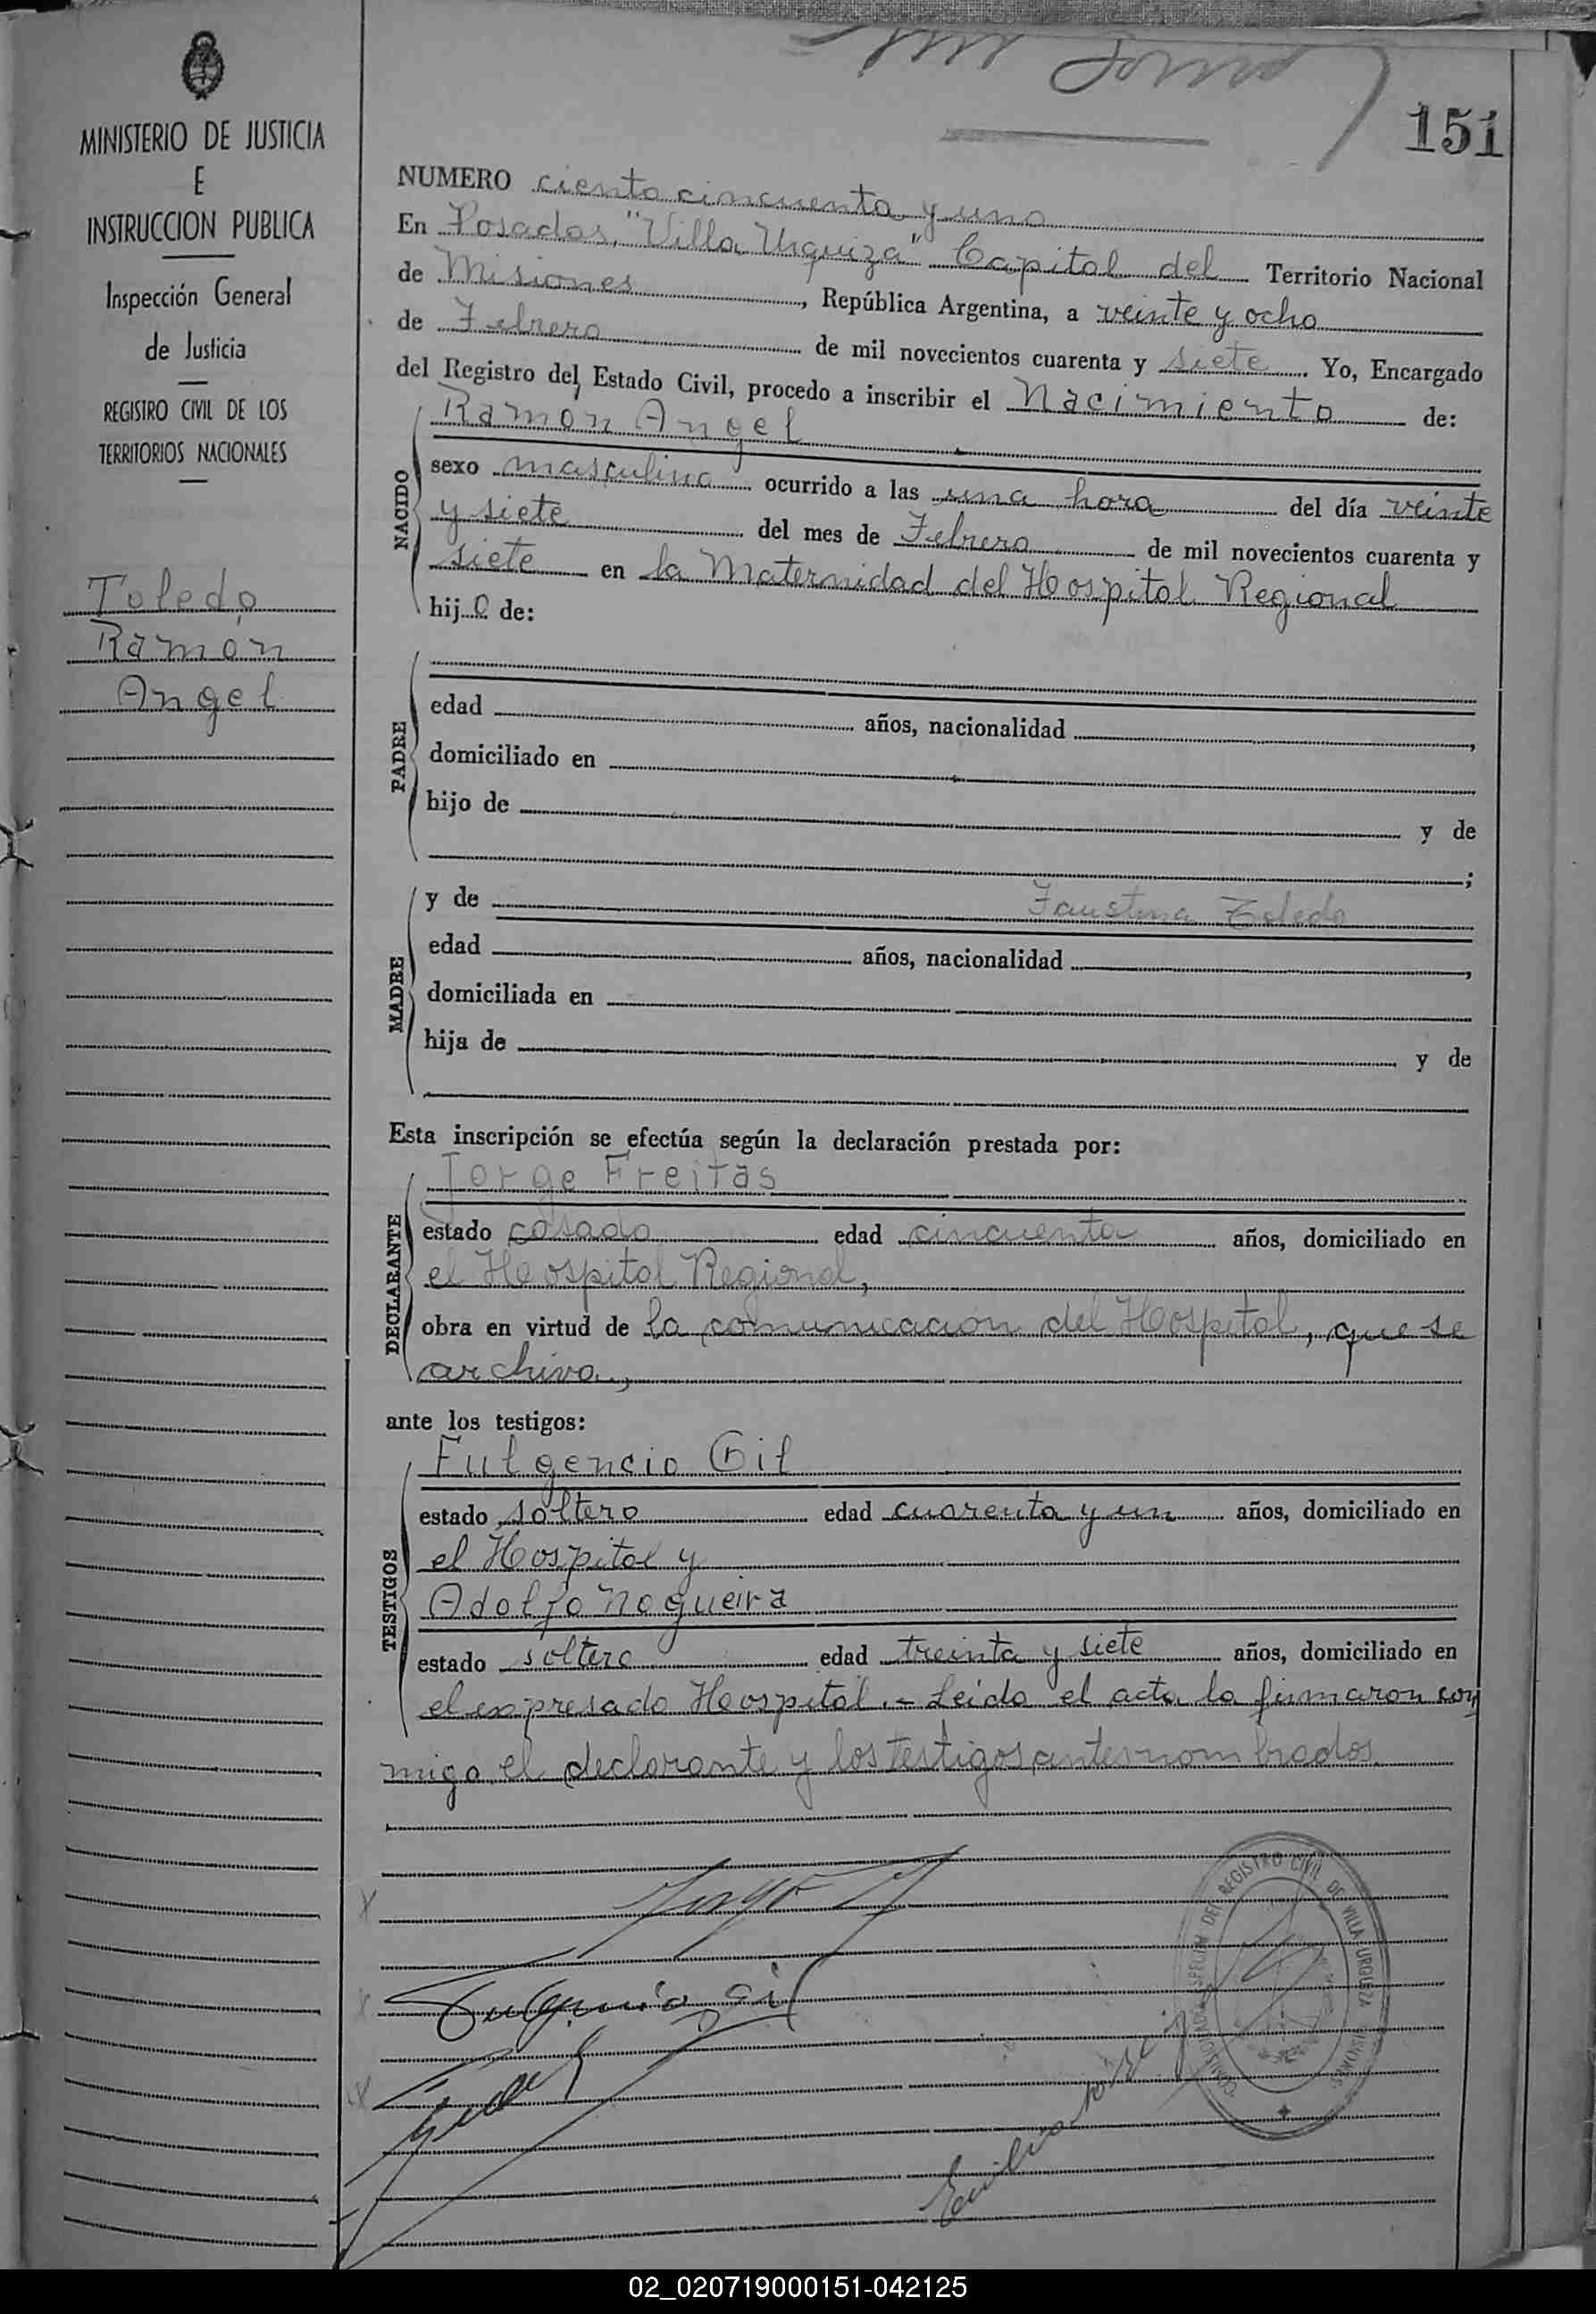 151
MINISTERIO DE JUSTICIA
E
INSTRUCCION PUBLICA
Inspección General
de Justicia
REGISTRO CIVIL DE LOS
TERRITORIOS NACIONALES
Toledo
Ramón
Angel
NUMERO ciento cincuenta y uno
En Posadas, "Villa Urquiza" Capital del Territorio Nacional
de Misiones, República Argentina, a veinte y ocho
de Febrero de mil novecientos cuarenta y siete. Yo, Encargado
del Registro del Estado Civil, procedo a inscribir el Nacimiento de:
NACIDO
Ramón Angel
sexo masculino ocurrido a las una hora del día veinte
y siete del mes de Febrero de mil novecientos cuarenta y
siete en la Maternidad del Hospital Regional
hijo de:
PADRE
edad años, nacionalidad ,
domiciliado en
hijo de y de
;
MADRE
y de Faustina Toledo
edad años, nacionalidad ,
domiciliada en
hija de y de
Esta inscripción se efectúa según la declaración prestada por:
DECLARANTE
Jorge Freitas
estado casado edad cincuenta años, domiciliado en
el Hospital Regional,
obra en virtud de la comunicación del Hospital, que se
archiva,
ante los testigos:
TESTIGOS
Fulgencio Gil
estado soltero edad cuarenta y un años, domiciliado en
el Hospital y
Adolfo Nogueira
estado soltero edad treinta y siete años, domiciliado en
el expresado Hospital.- Leida el acta la firmaron con
migo el declarante y los testigos antesnombrados.
Fulgencio Gil
REGISTRO CIVIL DE VILLA URQUIZA
02_020719000151-042125